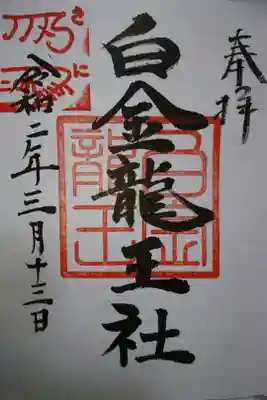 奉拝
白金龍王社
令和二年三月十三日
白金
龍王